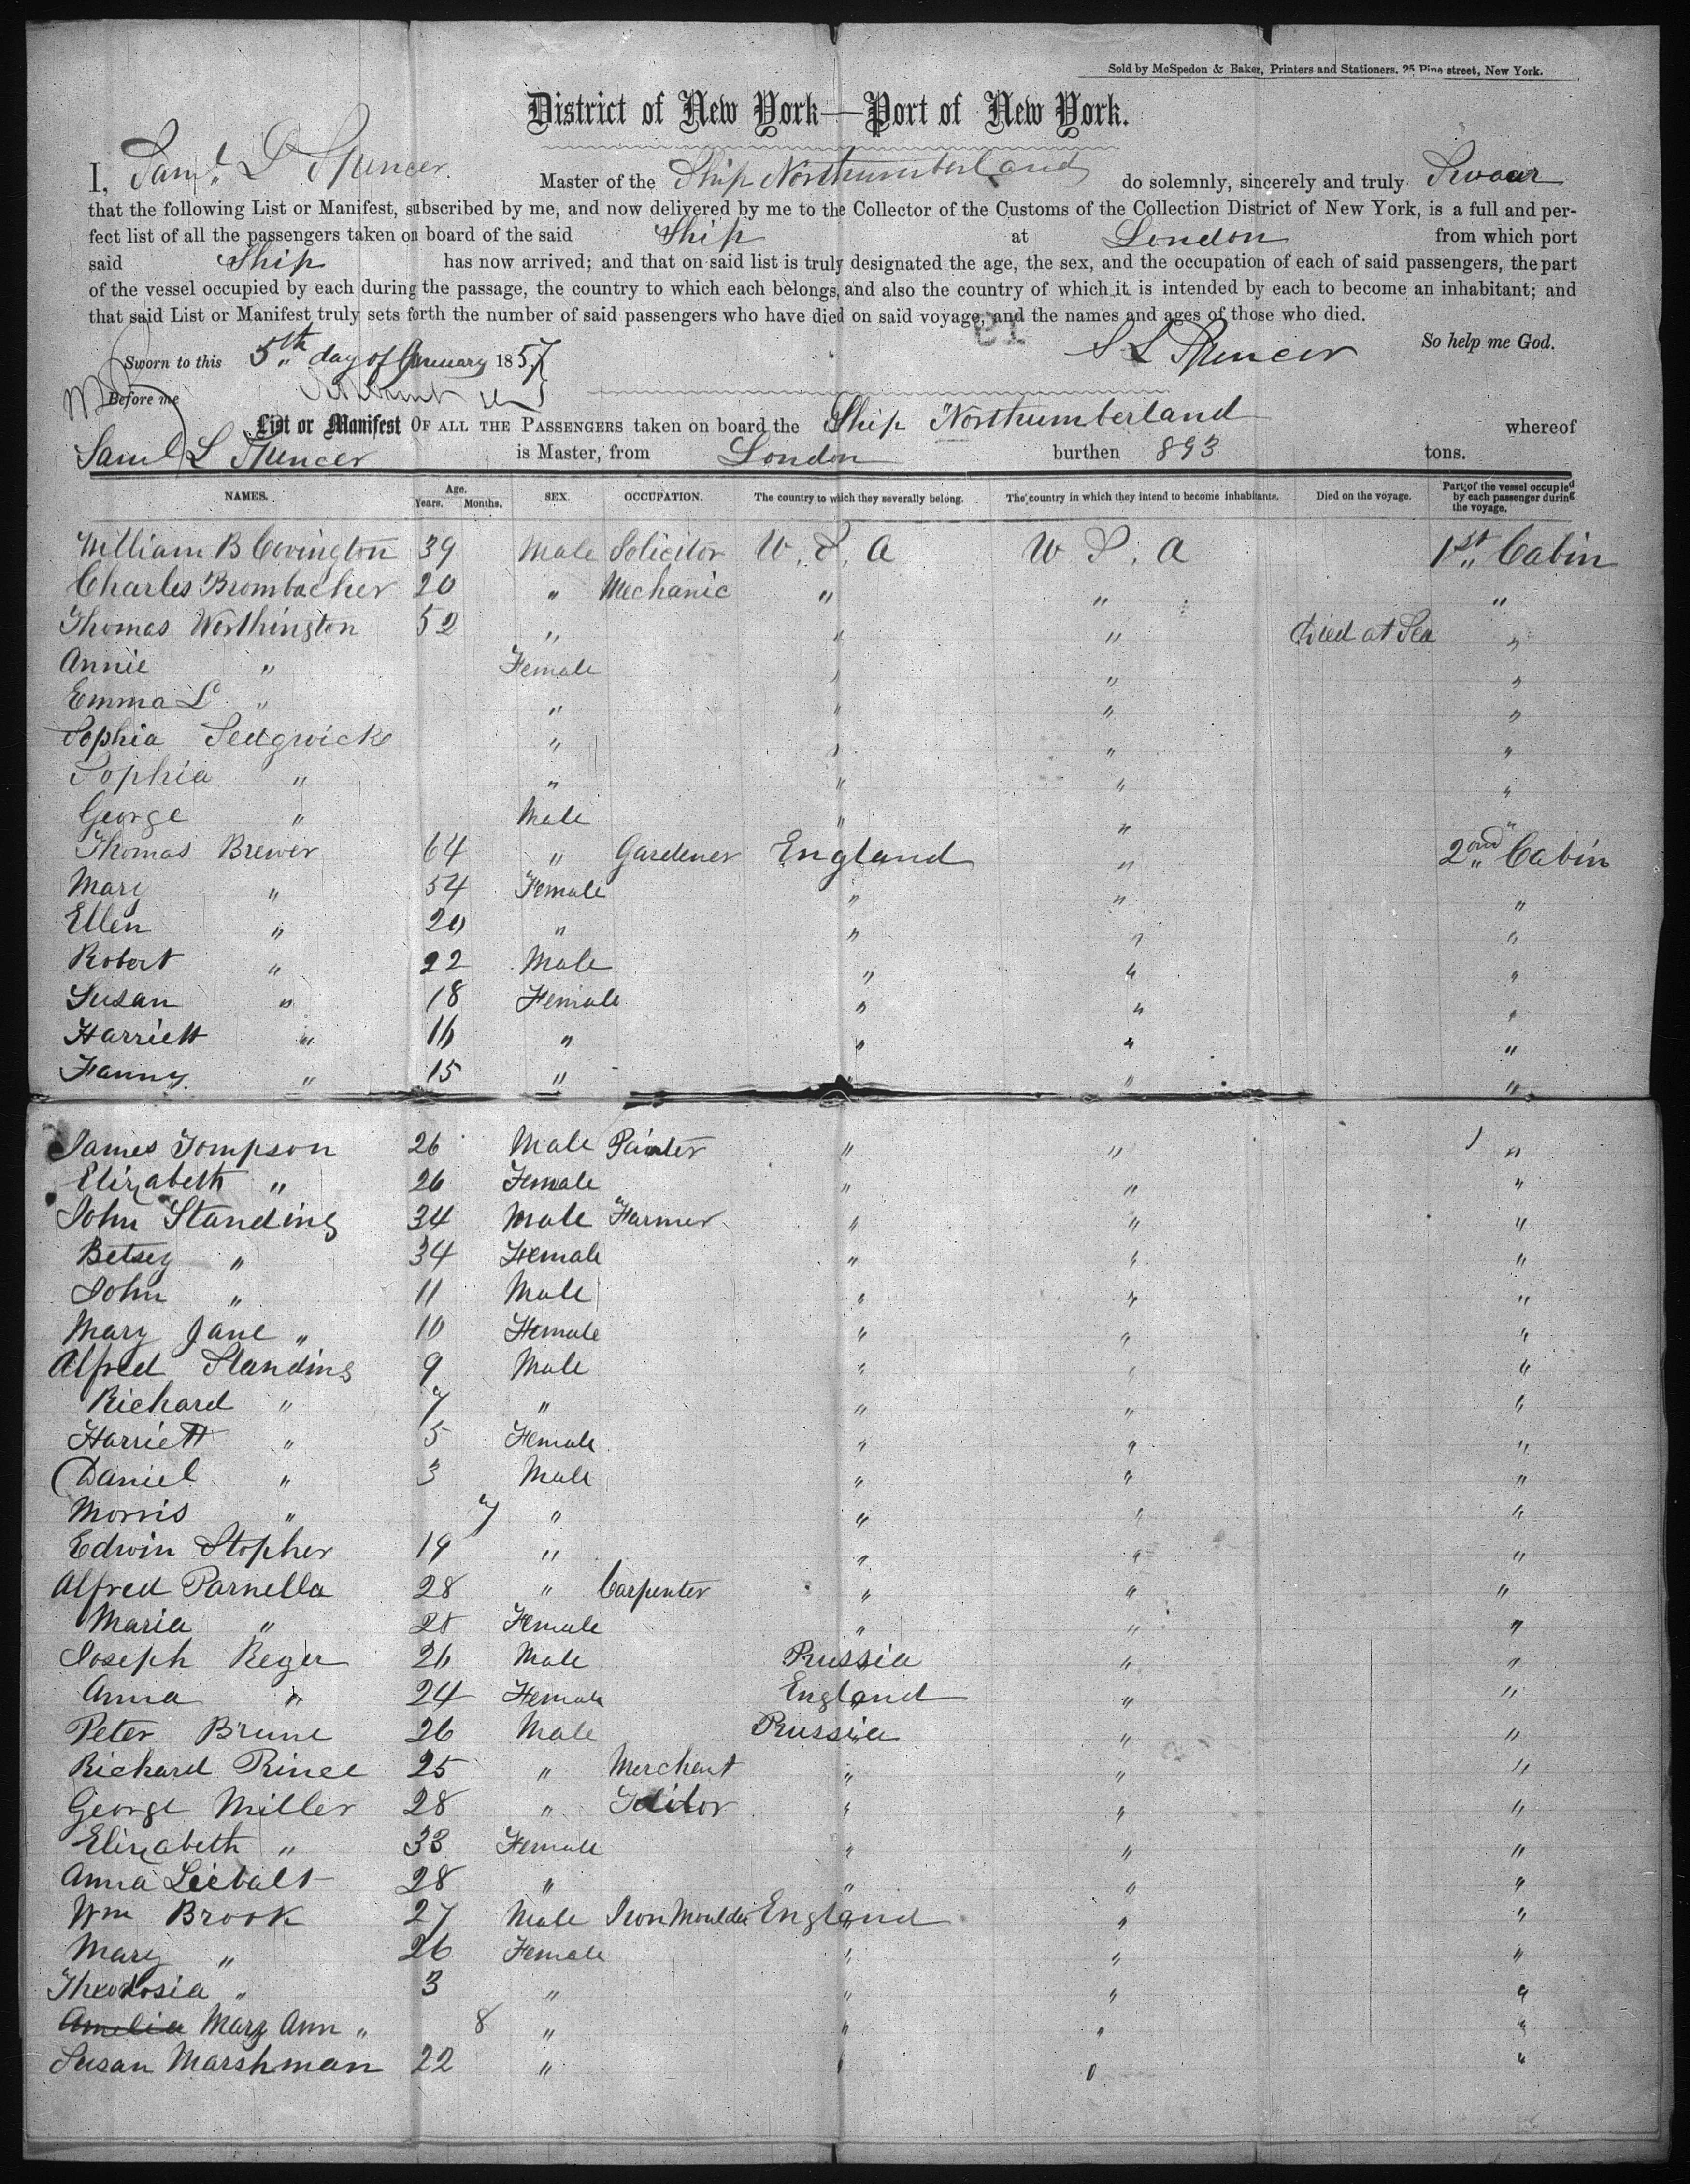 Sold by McSpedon & Baker, Printers and Stationers. 25 Pine street, New York.
District of New York—Port of New York.
I, Saml. L Spencer. Master of the Ship Northumberland do solemnly, sincerely and truly Swear
that the following List or Manifest, subscribed by me, and now delivered by me to the Collector of the Customs of the Collection District of New York, is a full and per-
fect list of all the passengers taken on board of the said Ship at London from which port
said Ship has now arrived; and that on said list is truly designated the age, the sex, and the occupation of each of said passengers, the part
of the vessel occupied by each during the passage, the country to which each belongs, and also the country of which it is intended by each to become an inhabitant; and
that said List or Manifest truly sets forth the number of said passengers who have died on said voyage, and the names and ages of those who died.
So help me God.
Sworn to this 5th day of January 1857 S L Spencer
Before me
List or Manifest OF ALL THE PASSENGERS taken on board the Ship Northumberland whereof
Saml L Spencer is Master, from London burthen 893 tons.
NAMES. Age. Years. Months. SEX. OCCUPATION. The country to which they severally belong. The country in which they intend to become inhabitants. Died on the voyage. Part of the vessel occupied by each passenger during the voyage.
William B Covington 39 Male Solicitor U. S. A U S. A 1st Cabin
Charles Brombacher 20 " Mechanic " " "
Thomas Worthington 52 " " " Died at Sea "
Annie " Female " " "
Emma L " " " " "
Sophia Sedgwick " " " "
Sophia " " " " "
George " Male " " "
Thomas Brewer 64 " Gardener England " 2nd Cabin
Mary " 54 Female " " "
Ellen " 20 " " " "
Robert " 22 Male " " "
Susan " 18 Female " " "
Harriett " 16 " " " "
Fanny " 15 " " " "
James Tompson 26 Male Painter " " "
Elizabeth " 26 Female " " "
John Standing 34 Male Farmer " " "
Betsey " 34 Female " " "
John " 11 Male " " "
Mary Jane " 10 Female " " "
Alfred Standing 9 Male " " "
Richard " 7 " " " "
Harriett " 5 Female " " "
Daniel " 3 Male " " "
Morris " 7 " " " "
Edwin Stopher 19 " " " "
Alfred Parnella 28 " Carpenter " " "
Maria " 28 Female " " "
Joseph Reger 26 Male Prussia " "
Anna " 24 Female England " "
Peter Brune 26 Male Prussia " "
Richard Prince 25 " Merchant " " "
George Miller 28 " " " "
Elizabeth " 33 Female " " "
Anna Liebalt 28 " " " "
Wm Brook 27 Male Iron Moulder England " "
Mary " 26 Female " " "
Theodosia " 3 " " " "
Amelia Mary Ann " 8 " " " "
Susan Marshman 22 " " " "